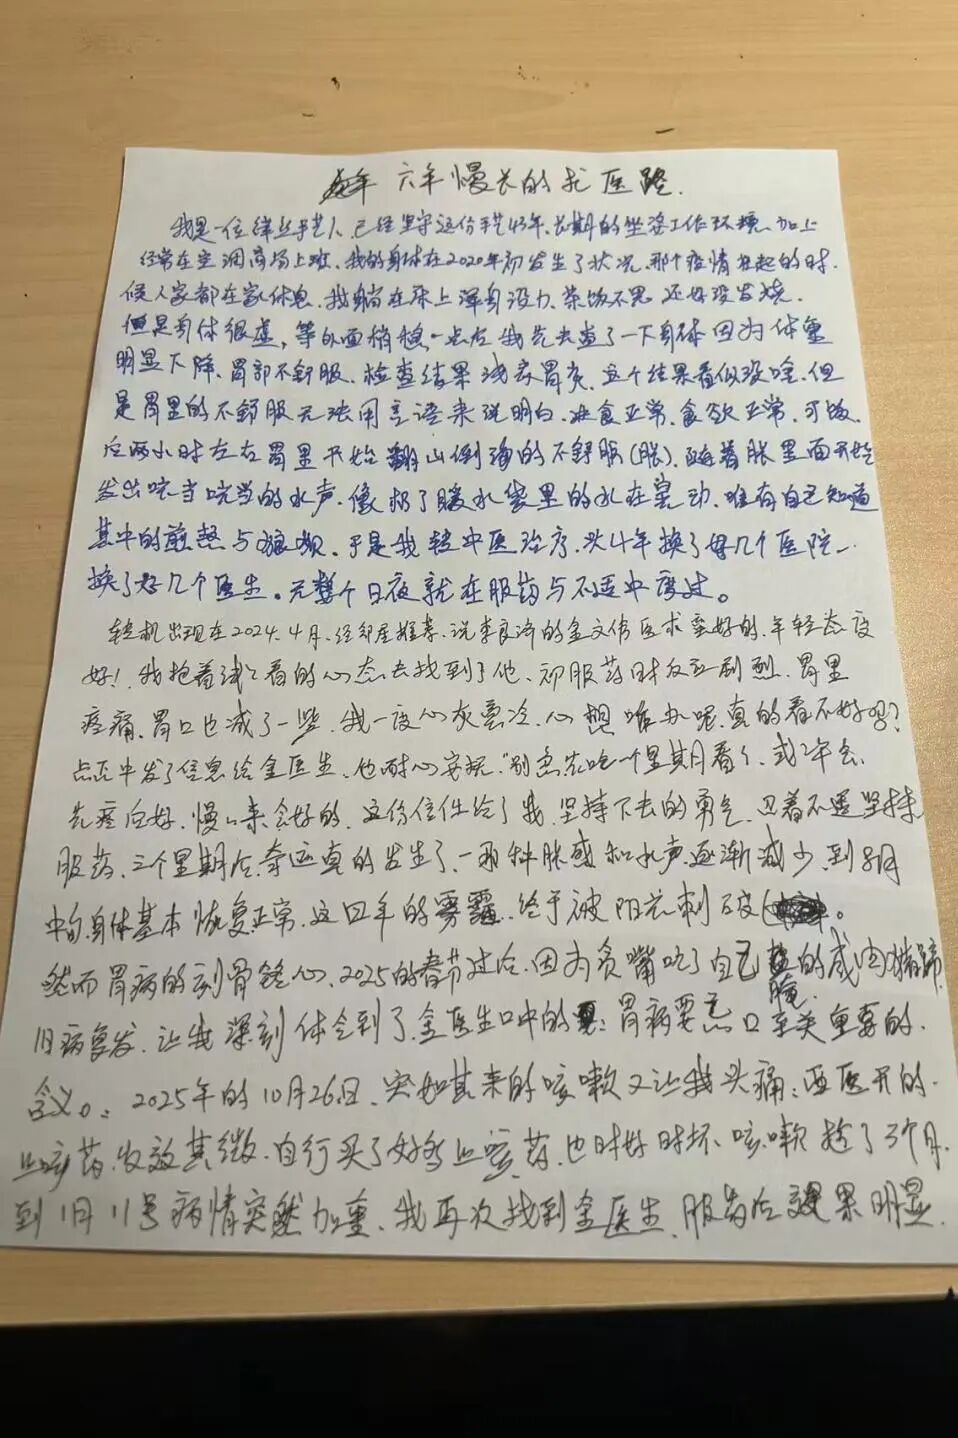 六年慢长的求医路.
我是一位缂丝手艺人,已经坐守这份手艺43年,长期的坐姿工作环境、加上
经常在空调商场上班、我的身体在2020年初发生了状况,那个疫情在起的时
候人家都在家休息,我躺在床上浑身没力、茶饭不思 还好没发烧.
但是身体很虚,等外面稍稳一点后我先去查了一下身体因为体重
明显下降、胃部不舒服、检查结果浅表胃炎,这个结果看似没啥,但
是胃里的不舒服无法用言语来说明白.进食正常,食欲正常,可饭
后两小时左右胃里开始翻山倒海的不舒服(胀),随着胀里面开始
发出咣当咣当的水声,像极了暖水袋里的水在晃动,唯有自己知道
其中的煎熬与狼狈.于是我转中医治疗,头4年换了好几个医院、
换了好几个医生。无整个日夜就在服药与不适中度过。
转机出现在2024.4月,经邻居推荐,说李良济的金文伟医术蛮好的,年轻态度
好!我抱着试之看的心态去找到了他、初服药时反应剧烈.胃里
疼痛,胃口也减了一些,我一度心灰意冷,心想咋办呢,真的看不好吗?
忐忑中发了信息给金医生、他耐心安抚,"别急先吃一个星期看看,或许会
先疼后好,慢慢来会好的,这份信任给了我,坚持下去的勇气,忍着不适坚持
服药,三个星期后,奇迹真的发生了、那种胀感和水声逐渐减少,到8月
中旬,身体基本恢复正常,这四年的雾霾,终于被阳光刺破。
然而胃病的刻骨铭心,2025的春节过后,因为贪嘴吃了自己腌的咸肉猪蹄,
旧病复发,让我深刻体会到了金医生口中的:胃病要忌口至关重要的.
含义。2025年的10月26日,突如其来的咳嗽又让我头痛;西医开的.
止咳药,收效甚微,自行买了好多止咳药,也时好时坏,咳嗽拖了3个月,
到1月11号病情突然加重,我再次找到金医生,服药后效果明显.